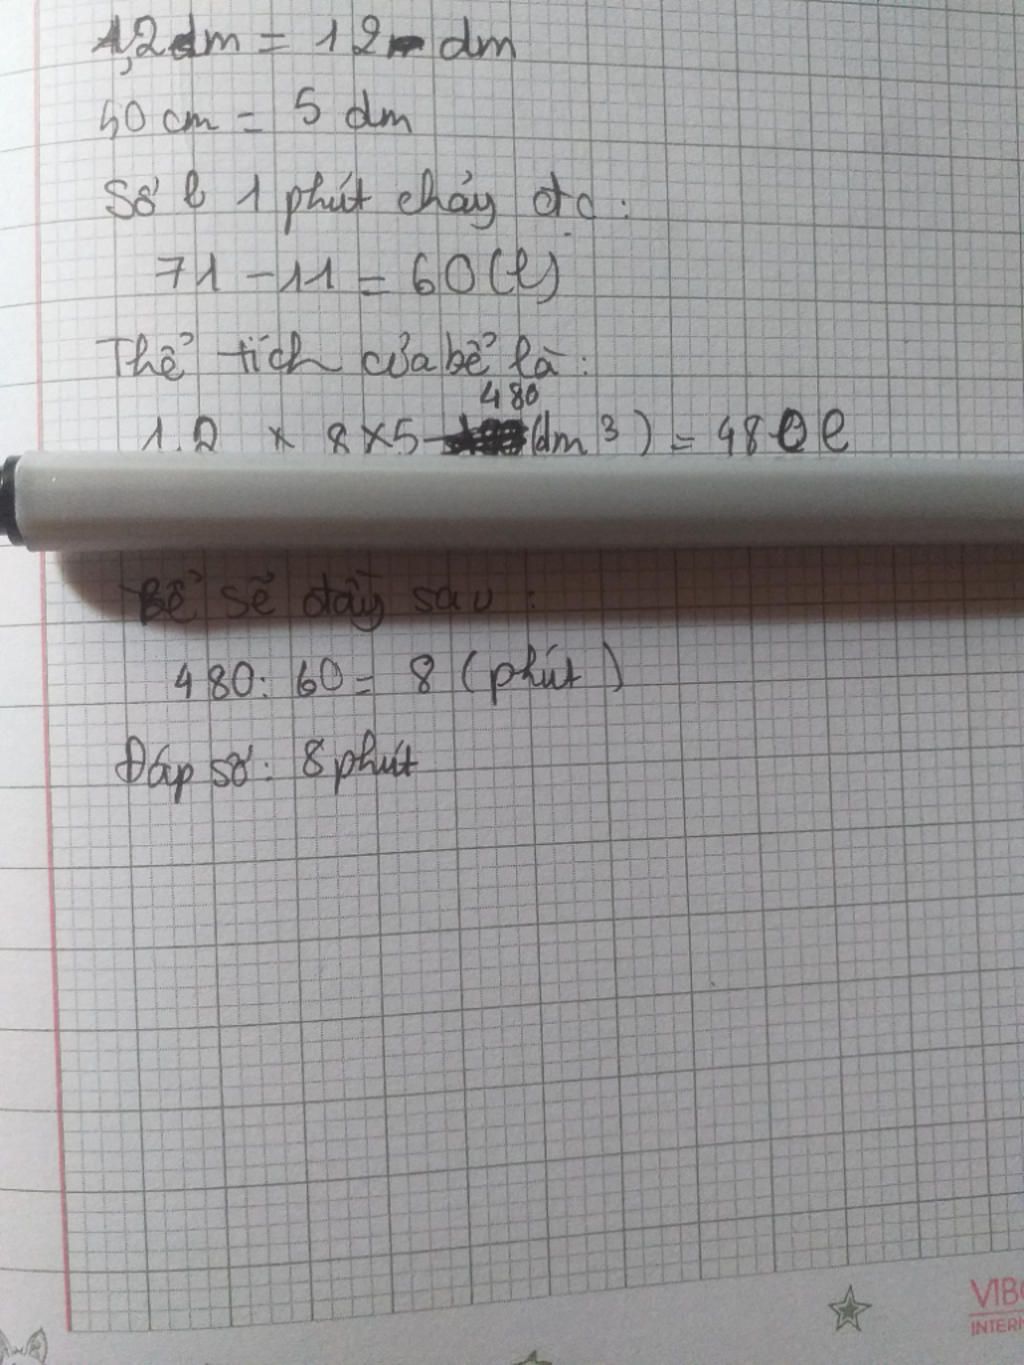 1,2dm = 12 dm
50 cm = 5 dm
Số l 1 phút chảy đc:
71 - 11 = 60(l)
Thể tích của bể là:
480
12 × 8×5 (dm³) = 480 l
Bể sẽ đầy sau:
480: 60= 8 (phút)
Đáp số: 8 phút
VIB
INTERN